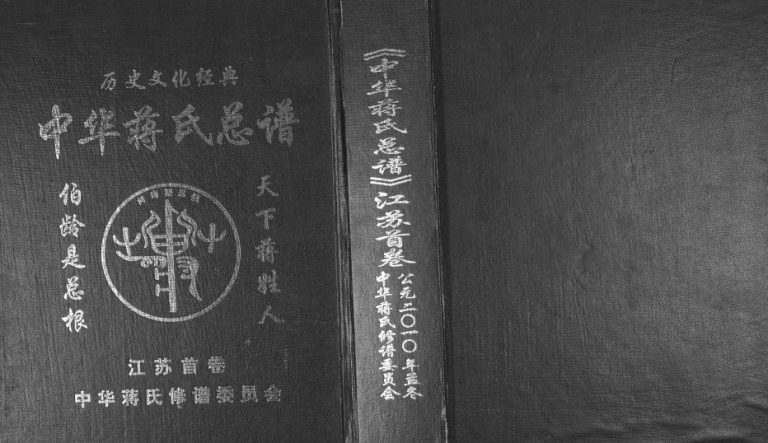 历史文化经典
中华蒋氏总谱
天下蒋姓人
伯龄是总根
江苏首卷
中华蒋氏修谱委员会
《中华蒋氏总谱》江苏首卷
公元二〇一〇年孟冬
中华蒋氏修谱委员会